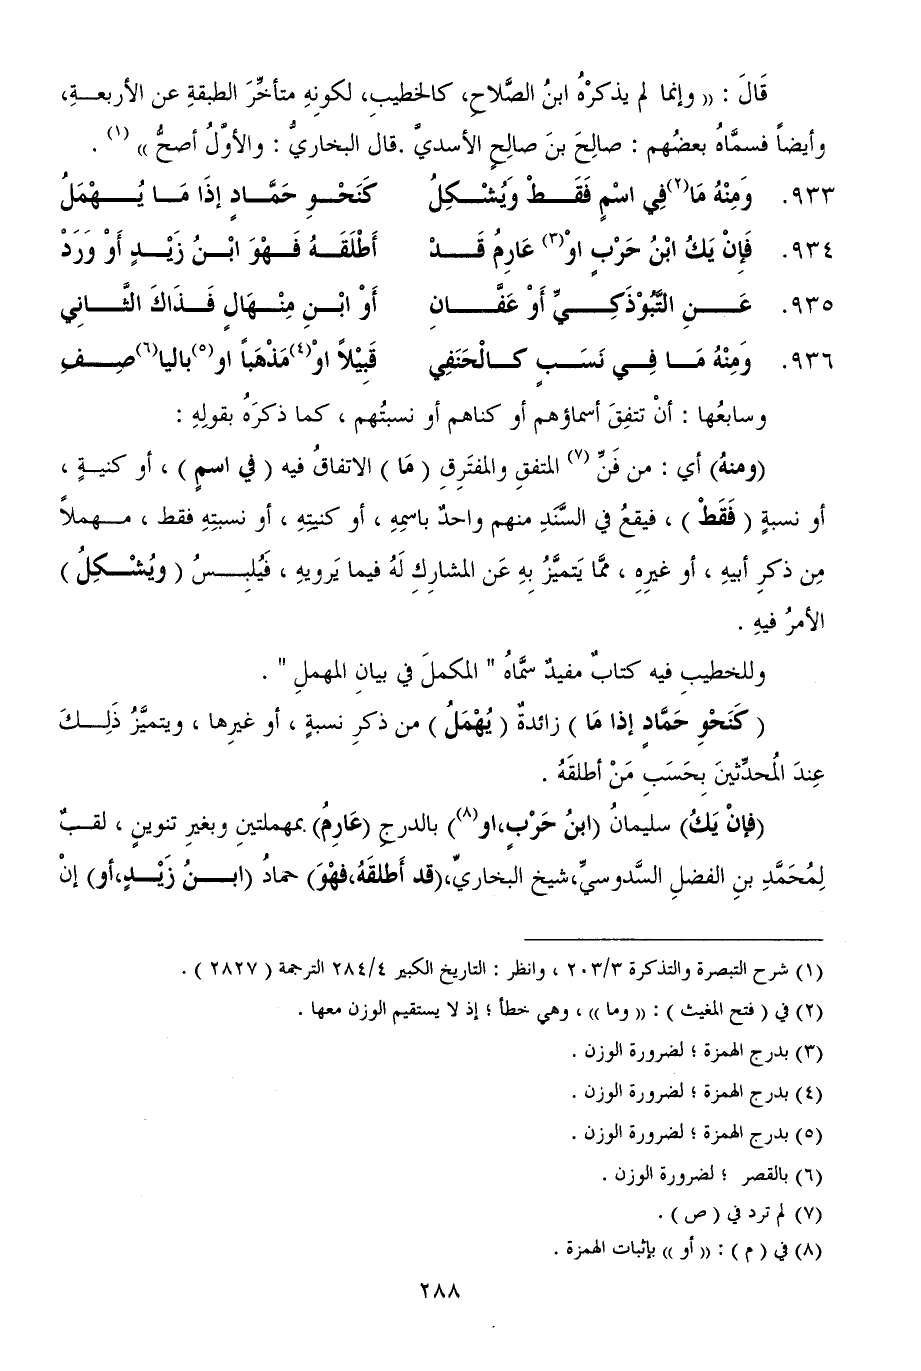 قَالَ : (( وإنما لم يذكرْهُ ابنُ الصَّلاحِ، كالخطيبِ، لكونِهِ متأخِّرَ الطبقةِ عن الأربعـةِ،
وأيضاً فسمَّاهُ بعضُهم : صالحَ بنَ صالحٍ الأسديَّ .قال البخاريُّ : والأوَّلُ أصحُّ )) (١) .
٩٣٣. وَمِنْهُ مَا(٢)فِي اسْمٍ فَقَطْ وَيُشْكِلُ كَنَحْوِ حَمَّادٍ إذَا مَا يُهْمَلُ
٩٣٤. فَإنْ يَكُ ابْنُ حَرْبٍ او(٣) عَارِمُ قَدْ أَطْلَقَهُ فَهْوَ ابْنُ زَيْدٍ أَوْ وَرَدْ
٩٣٥. عَنِ التَّبُوْذَكِيِّ أَوْ عَفَّانِ أَوْ ابْنِ مِنْهَالٍ فَذَاكَ الثَّانِي
٩٣٦. وَمِنْهُ مَا فِي نَسَبٍ كَالْحَنَفِي قَبِيْلاً او(٤)مَذْهَباً او(٥)باليا(٦)صِفِ
وسابعُها : أنْ تتفِقَ أسماؤهم أو كناهم أو نسبتُهم ، كما ذكرَهُ بقولِهِ :
(ومنهُ) أي : من فَنِّ (٧) المتفقِ والمفترقِ ( مَا ) الاتفاقُ فيه ( في اسمٍ ) ، أو كنيةٍ ،
أو نسبةٍ ( فَقَطْ ) ، فيقعُ في السَّنَدِ منهم واحدٌ باسمِهِ ، أو كنيتِهِ ، أو نسبتِهِ فقط ، مهملاً
مِن ذكرِ أبيهِ ، أو غيرِهِ ، ممَّا يَتميَّزُ بهِ عَن المشاركِ لَهُ فيما يَرويهِ ، فَيُلبِسُ ( ويُشْكِلُ )
الأمرُ فيهِ .
وللخطيبِ فيه كتابٌ مفيدٌ سمَّاهُ " المكملَ في بيانِ المهملِ " .
( كَنَحْوِ حَمَّادٍ إذا مَا ) زائدةٌ ( يُهْمَلُ ) من ذكرِ نسبةٍ ، أو غيرِها ، ويتميَّزُ ذَلِكَ
عِندَ المُحدِّثينَ بِحَسَبِ مَنْ أطلقَهُ .
(فإنْ يَكُ) سليمانُ (ابنُ حَرْبٍ،او(٨)) بالدرجِ (عَارِمُ) بمهملتينِ وبغيرِ تنوينٍ ، لقبٌ
لِمُحَمَّدِ بنِ الفضلِ السَّدوسيِّ،شيخِ البخاريِّ،(قد أَطلقَهُ،فهْوَ) حمادُ (ابنُ زَيْدٍ،أو) إنْ
(١) شرح التبصرة والتذكرة ٢٠٣/٣ ، وانظر : التاريخ الكبير ٢٨٤/٤ الترجمة ( ٢٨٢٧ ) .
(٢) في ( فتح المغيث ) : (( وما )) ، وهي خطأ ؛ إذ لا يستقيم الوزن معها .
(٣) بدرج الهمزة ؛ لضرورة الوزن .
(٤) بدرج الهمزة ؛ لضرورة الوزن .
(٥) بدرج الهمزة ؛ لضرورة الوزن .
(٦) بالقصر ؛ لضرورة الوزن .
(٧) لم ترد في ( ص ) .
(٨) في ( م ) : (( أو )) بإثبات الهمزة .
٢٨٨